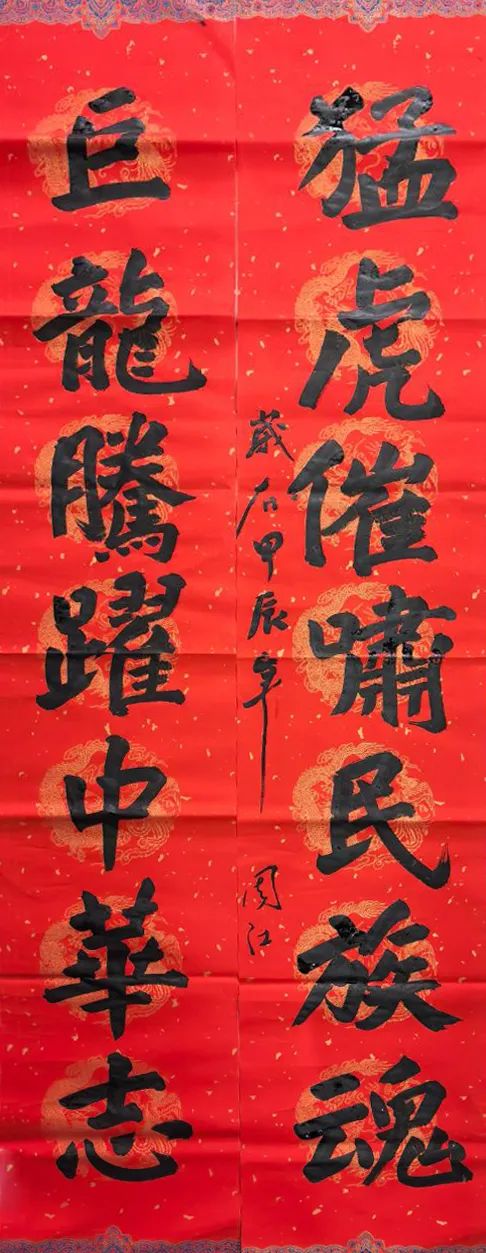 猛虎催嘯民族魂
歲在甲辰年
周江
巨龍騰躍中華志